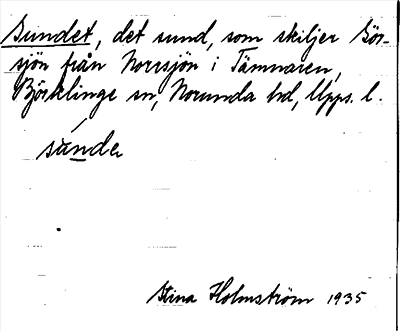 Sundet, det sund, som skiljer Sör-
sjön från Norrsjön i Tämnaren,
Björklinge sn, Norunda hd, Upps. l.
súndə
Stina Holmström 1935